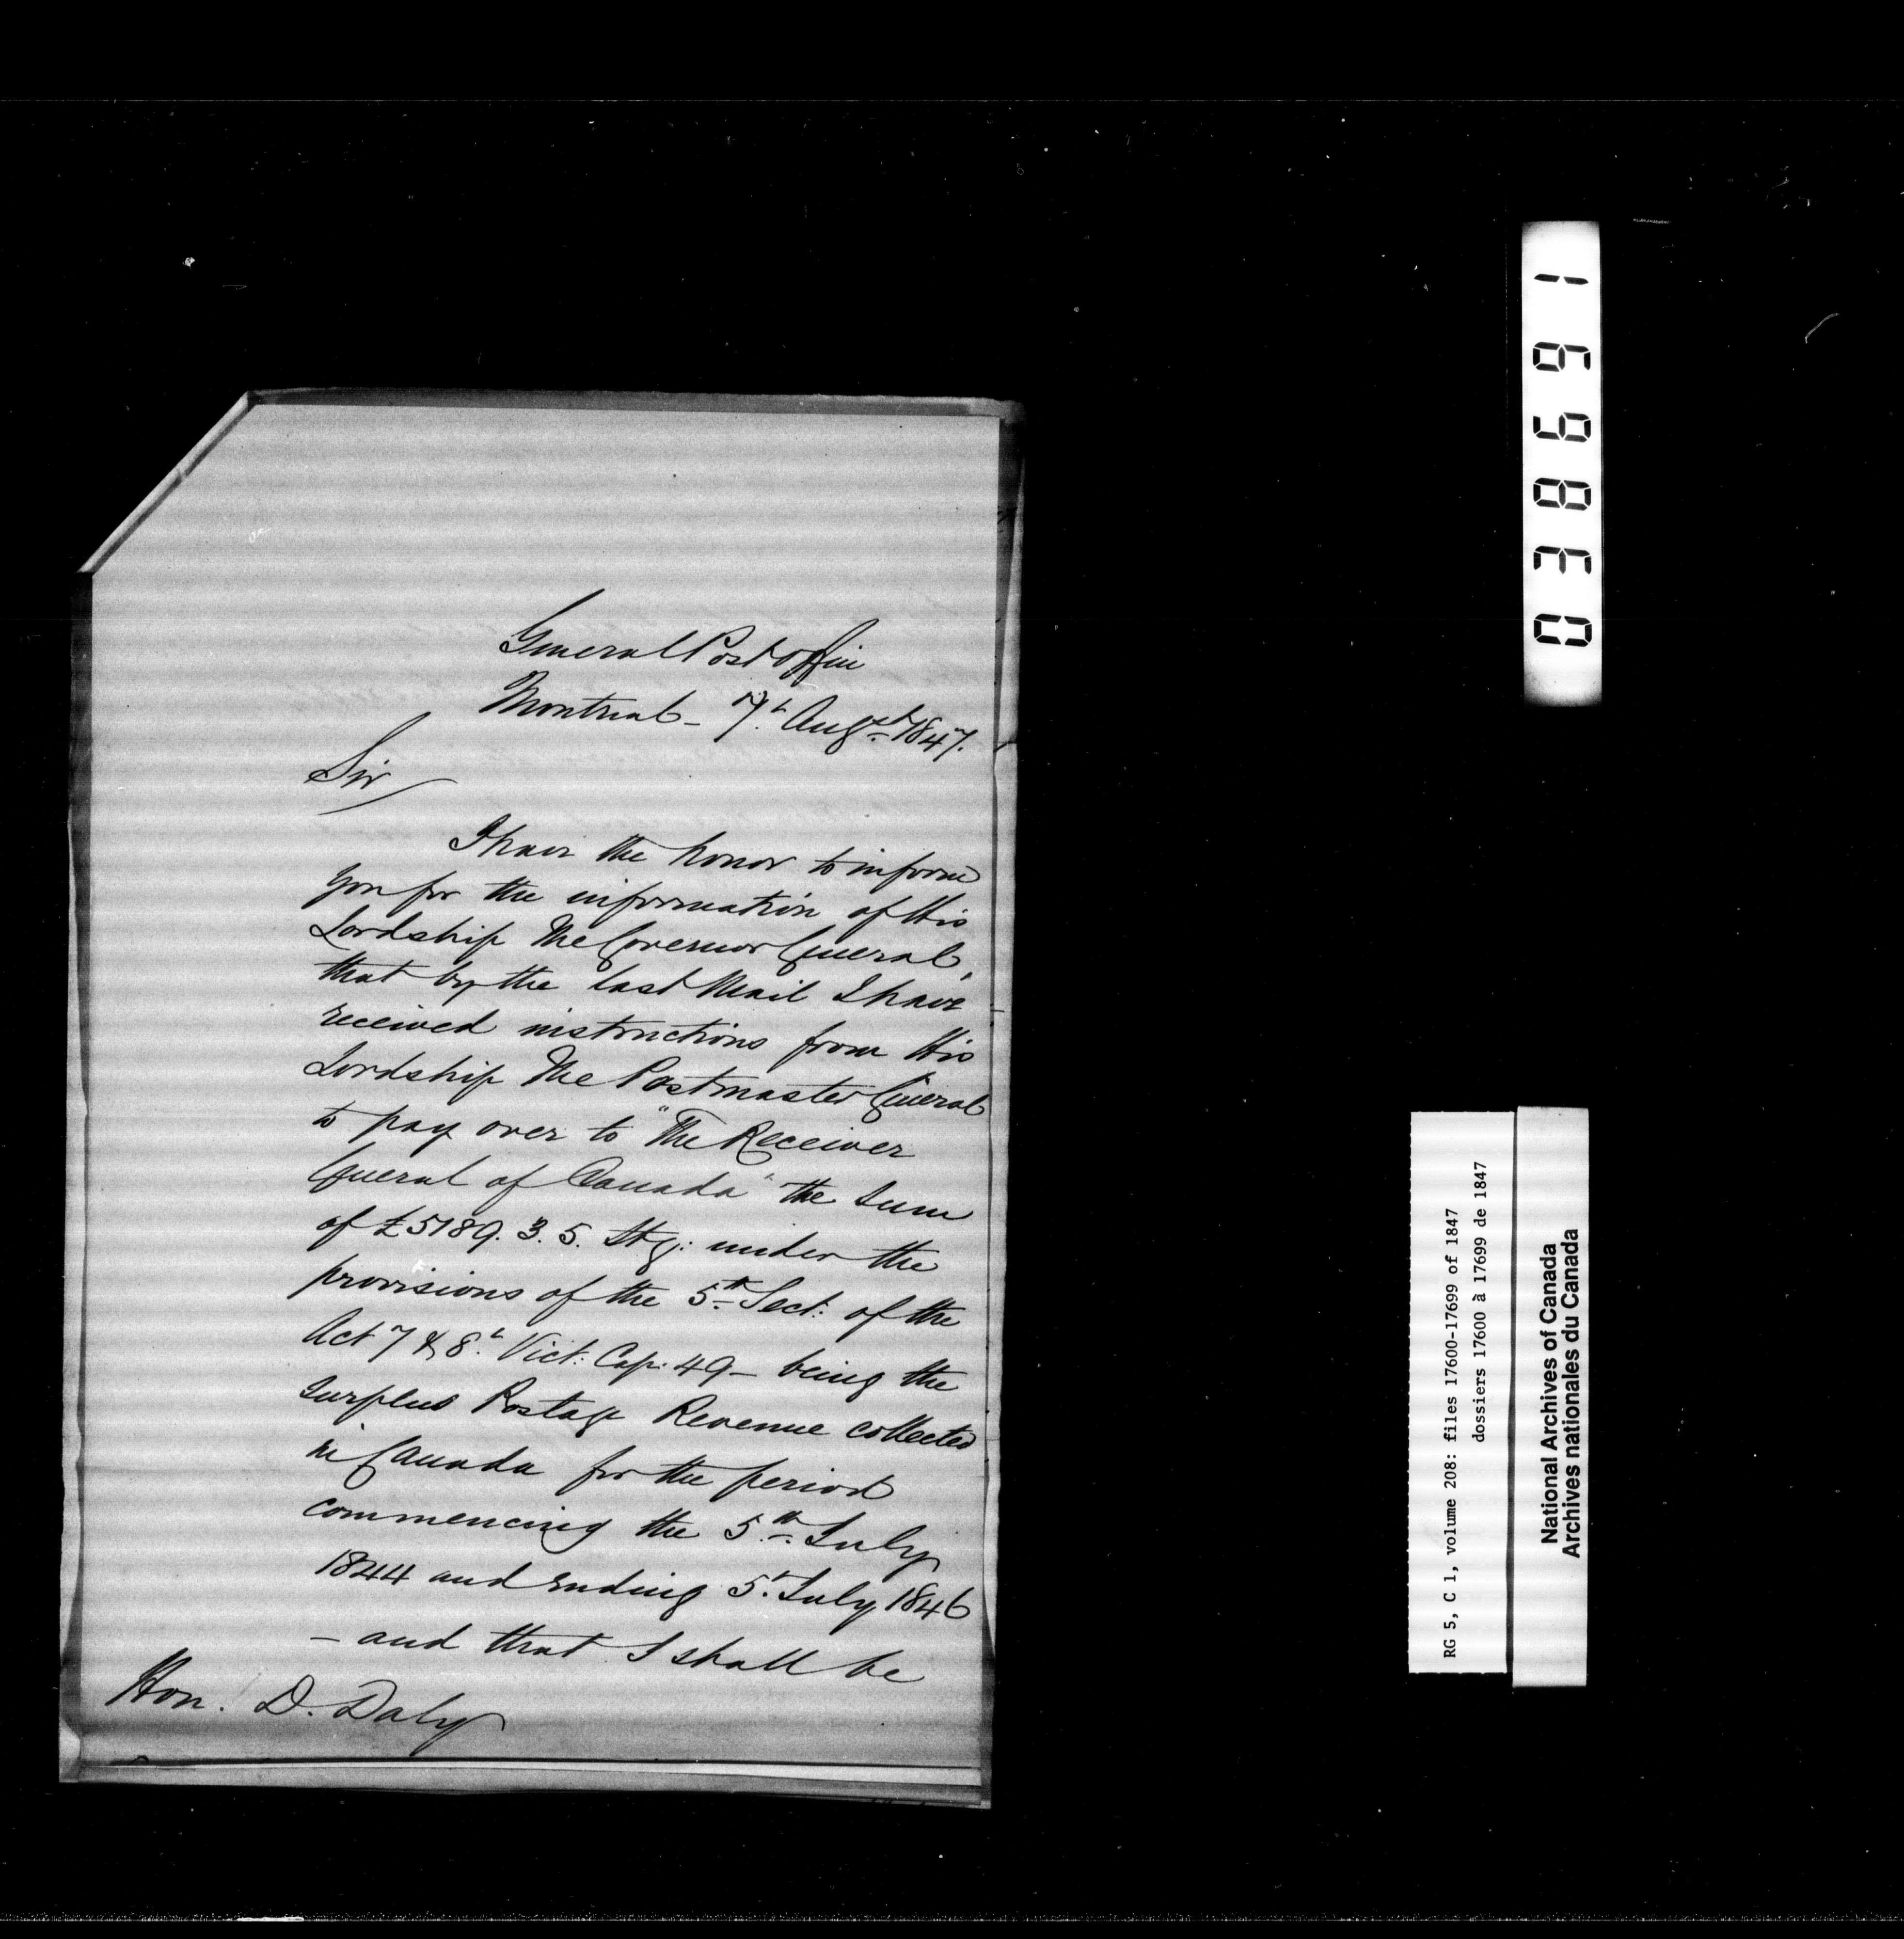 General Post Office
Montreal - 7th. Augst 1847.
Sir
I have the honor to inform
you for the information of His
Lordship The Governor General,
that by the last Mail I have
received instructions from His
Lordship The Postmaster General
to pay over to "The Receiver
General of Canada" the sum
of £5189. 3. 5. Stg: under the
provisions of the 5th Sect: of the
Act 7 & 8th Vict: Cap: 49 - being the
surplus Postage Revenue collected
in Canada for the period
commencing the 5th July
1844 and ending 5th July 1846
- and that I shall be
Hon. D. Daly
038691
RG 5, C 1, volume 208: files 17600-17699 of 1847
dossiers 17600 à 17699 de 1847
National Archives of Canada
Archives nationales du Canada